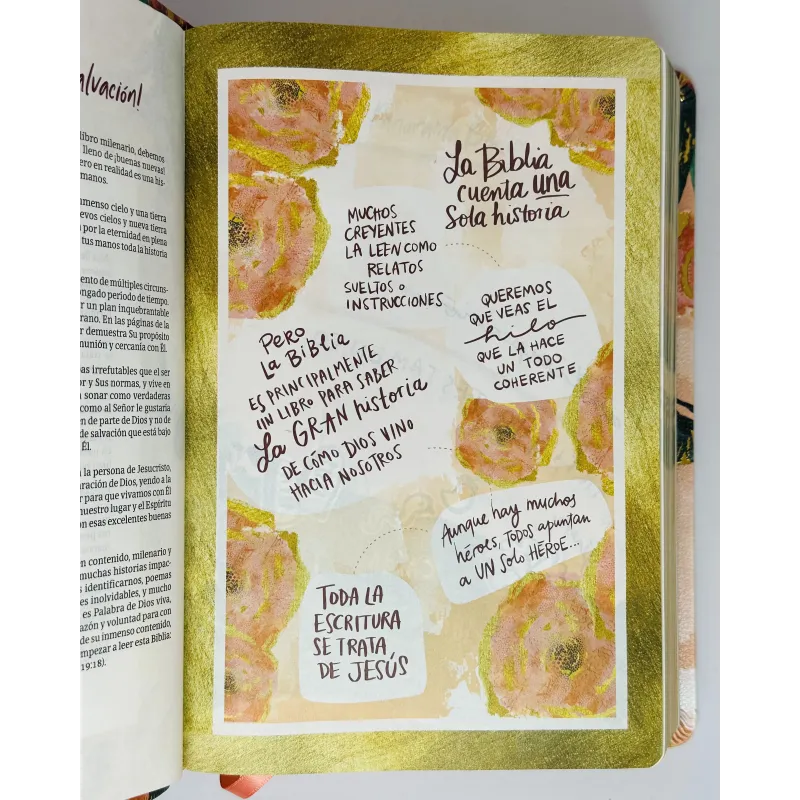 alvación!
libro milenario, debemos
lleno de ¡buenas nuevas!
ero en realidad es una his-
manos.
menso cielo y una tierra
evos cielos y nueva tierra
por la eternidad en plena
tus manos toda la historia
ento de múltiples circuns-
ongado período de tiempo.
r un plan inquebrantable
rano. En las páginas de la
er demuestra Su propósito
munión y cercanía con Él.
as irrefutables que el ser
or y Sus normas, y vive en
sonar como verdaderas
como al Señor le gustaría
n de parte de Dios y no de
de salvación que está bajo
Él.
n la persona de Jesucristo,
aración de Dios, yendo a la
r para que vivamos con Él
nuestro lugar y el Espíritu
on esas excelentes buenas
n contenido, milenario y
muchas historias impac-
s identificarnos, poemas
es inolvidables, y mucho
es Palabra de Dios viva,
azón y voluntad para con
de su inmenso contenido,
mpezar a leer esta Biblia:
19:18).
La Biblia
cuenta una
Sola historia
MUCHOS
CREYENTES
LA LEEN COMO
RELATOS
SUELTOS O
INSTRUCCIONES
QUEREMOS
QUE VEAS EL
hilo
QUE LA HACE
UN TODO
COHERENTE
PERO
LA BIBLIA
ES PRINCIPALMENTE
UN LIBRO PARA SABER
La GRAN historia
DE CÓMO DIOS VINO
HACIA NOSOTROS
Aunque hay muchos
héroes, TODOS apuntan
a UN Solo HÉROE...
TODA LA
ESCRITURA
SE TRATA
DE JESÚS